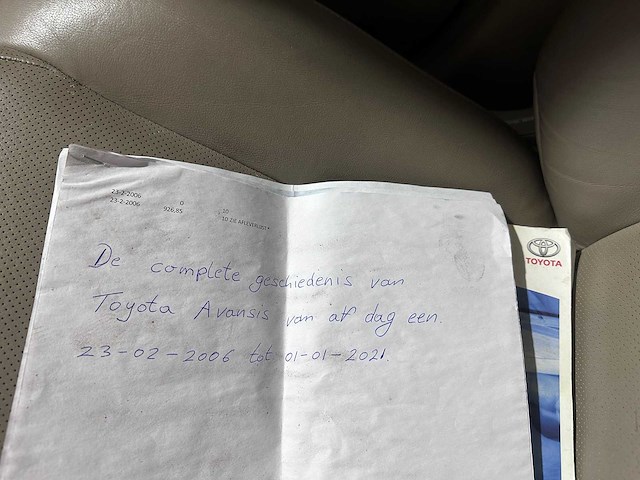 23-2-2006 0
23-2-2006 926,85 10 ZIE AFLEVERLIJST *
De complete geschiedenis van
Toyota Avansis van af dag een.
23-02-2006 tot 01-01-2021.
TOYOTA